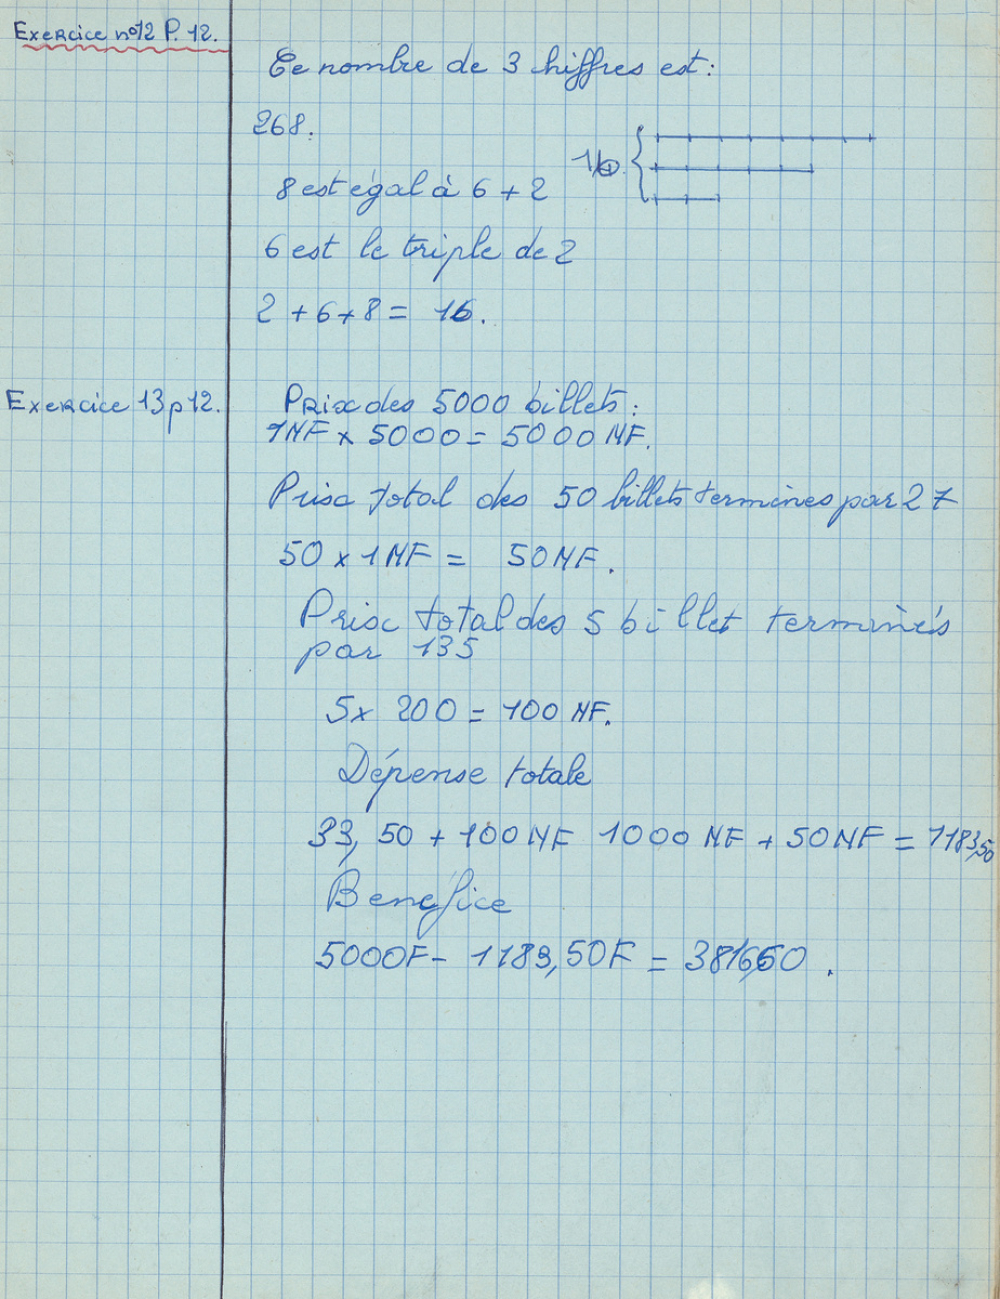 Exercice n°12 P. 12.
Ce nombre de 3 hiffres est:
268.
8 est égal à 6 + 2
6 est le triple de 2
2 + 6 + 8 = 16.
Exercice 13 p 12.
Prix des 5000 billets:
1NF x 5000 = 5000 NF.
Prix total des 50 billets terminés par 27
50 x 1 NF = 50 NF.
Prix total des 5 billet terminés
par 135
5x 200 = 100 NF.
Dépense totale
33, 50 + 100 NF 1000 NF + 50 NF = 1183,50
Benefice
5000F - 1183,50F = 3816,50.